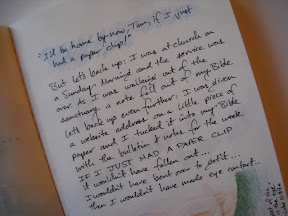 "I'd be home by now, Tam, if I just
had a paper clip!"
But let's back up: I was at church on
a Sunday Morning and the service was
over. As I was walking out of the
sanctuary a note fell out of my Bible
Let's back up even further: I was given
a website address on a little piece of
paper and I tucked it into my Bible
with the bulletin & notes for the week.
IF I JUST HAD A PAPER CLIP
it wouldn't have fallen out...
I wouldn't have bent over to get it...
then I wouldn't have made eye contact...